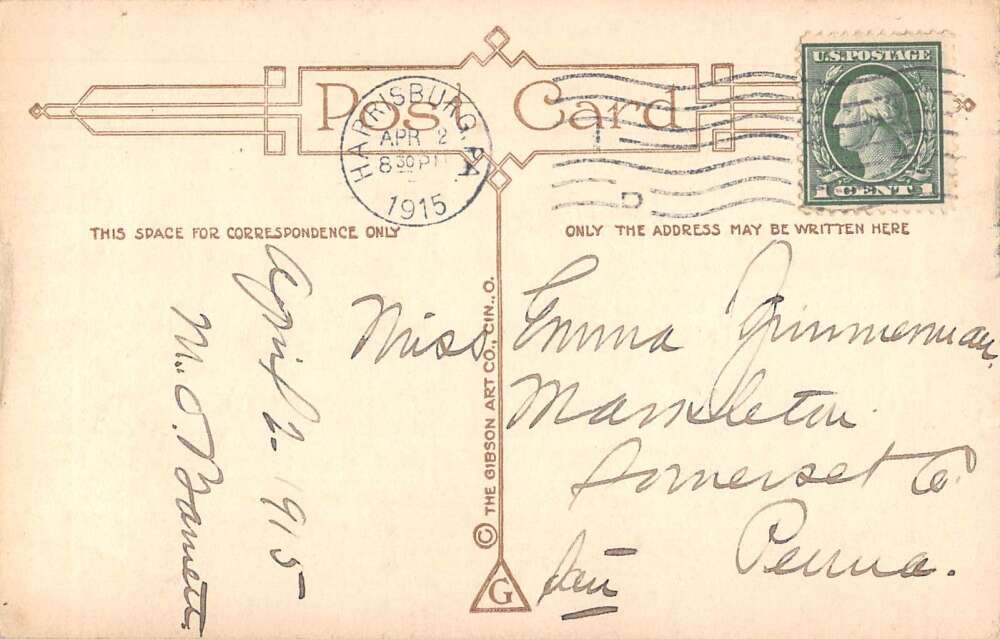 Post Card
HARRISBURG, PA
APR 2
8 30 PM
1915
U.S. POSTAGE
1 CENT 1
THIS SPACE FOR CORRESPONDENCE ONLY
ONLY THE ADDRESS MAY BE WRITTEN HERE
April 2. 1915
M. O. Barnett.
© THE GIBSON ART CO., CIN., O.
G
Miss Emma Zimmerman,
Markleton
Somerset Co
Penna.